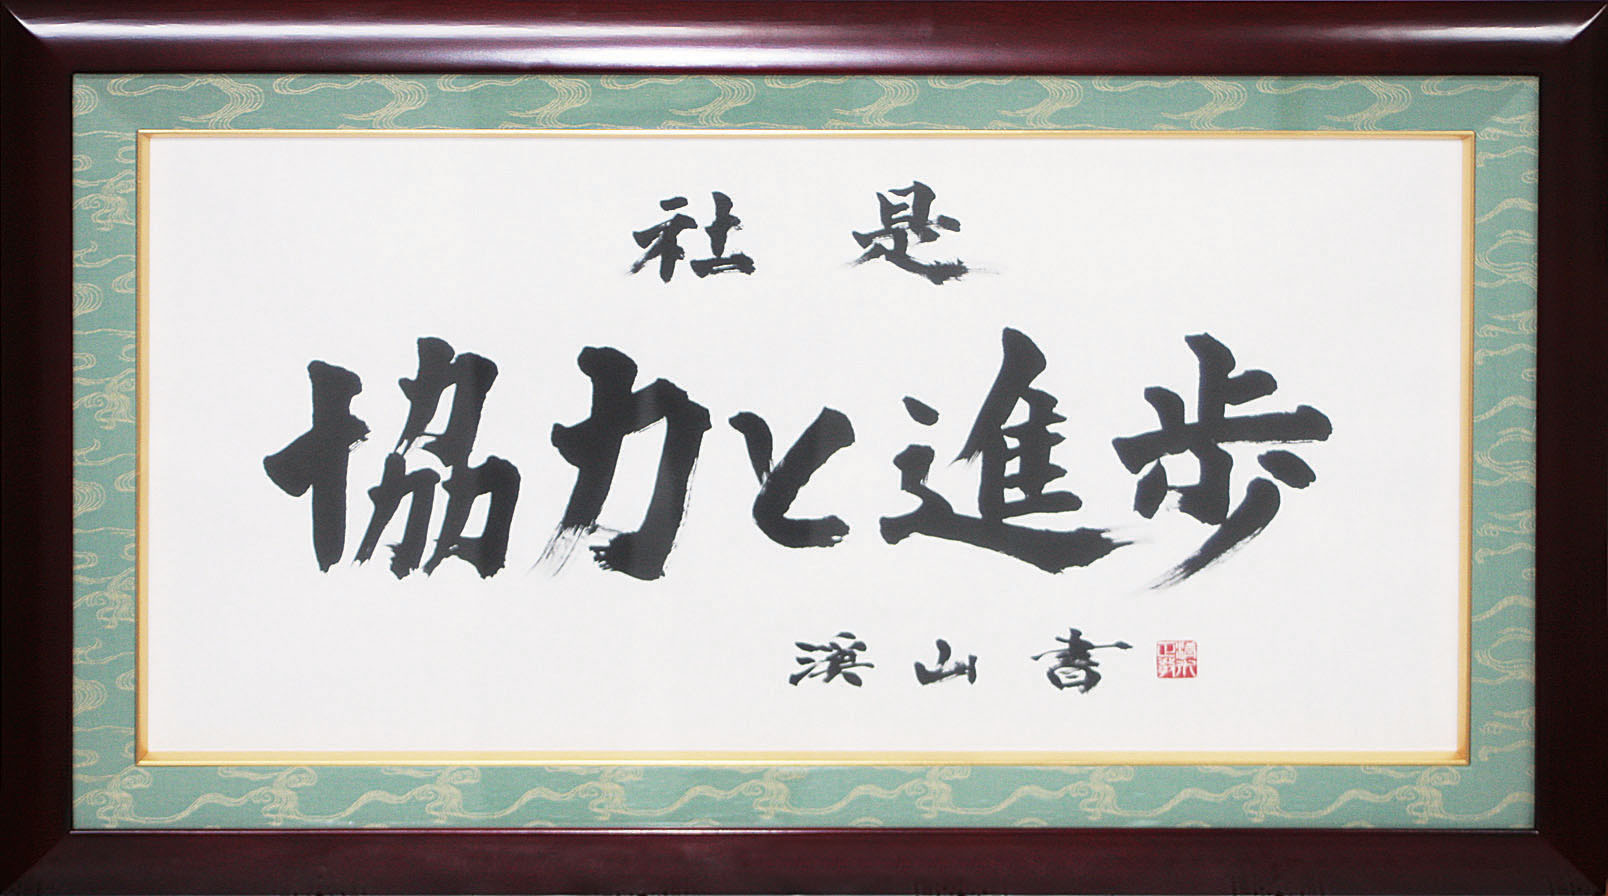 社是
協力と進歩
渓山書